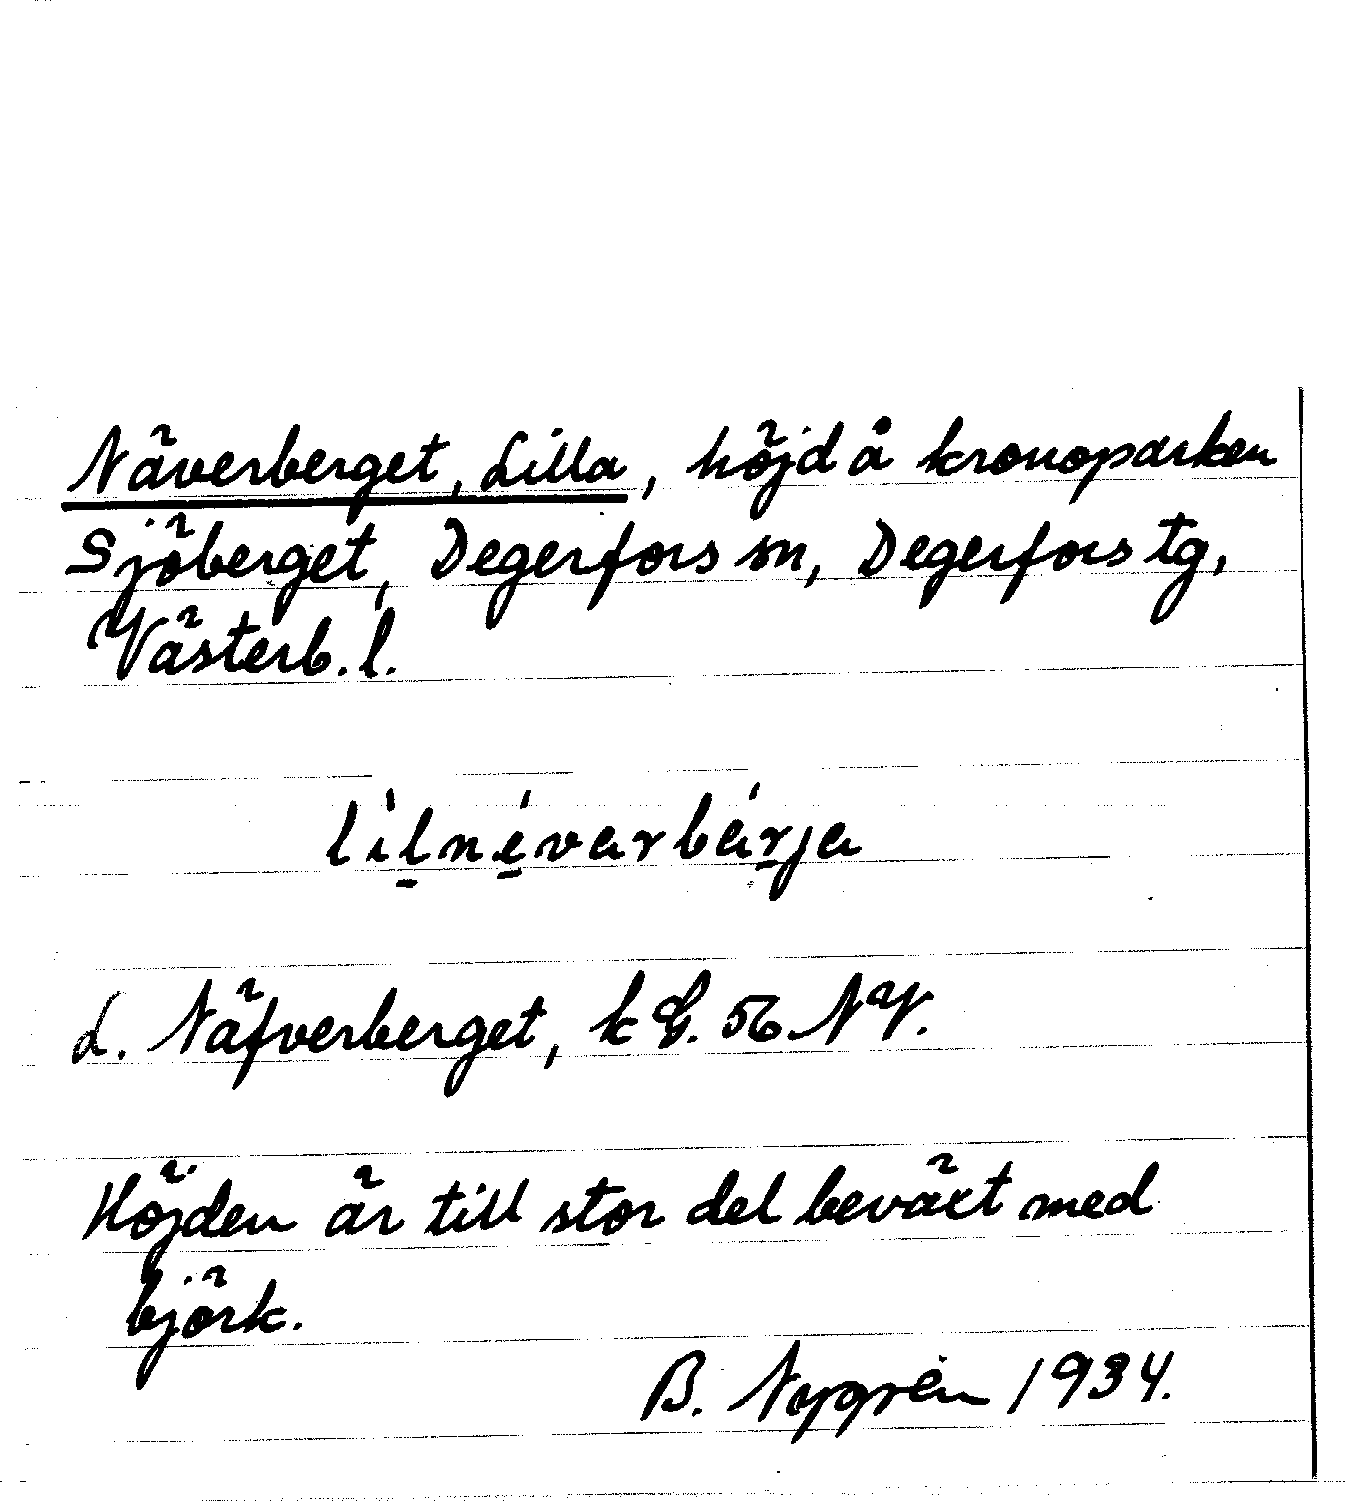 Näverberget, Lilla, höjd å kronoparken
Sjöberget, Degerfors sn, Degerfors tg,
Västerb. l.
lìlnévarbárja
L. Näfverberget, k G. 56 NV.
Höjden är till stor del beväxt med
björk.
B. Nygrén 1934.